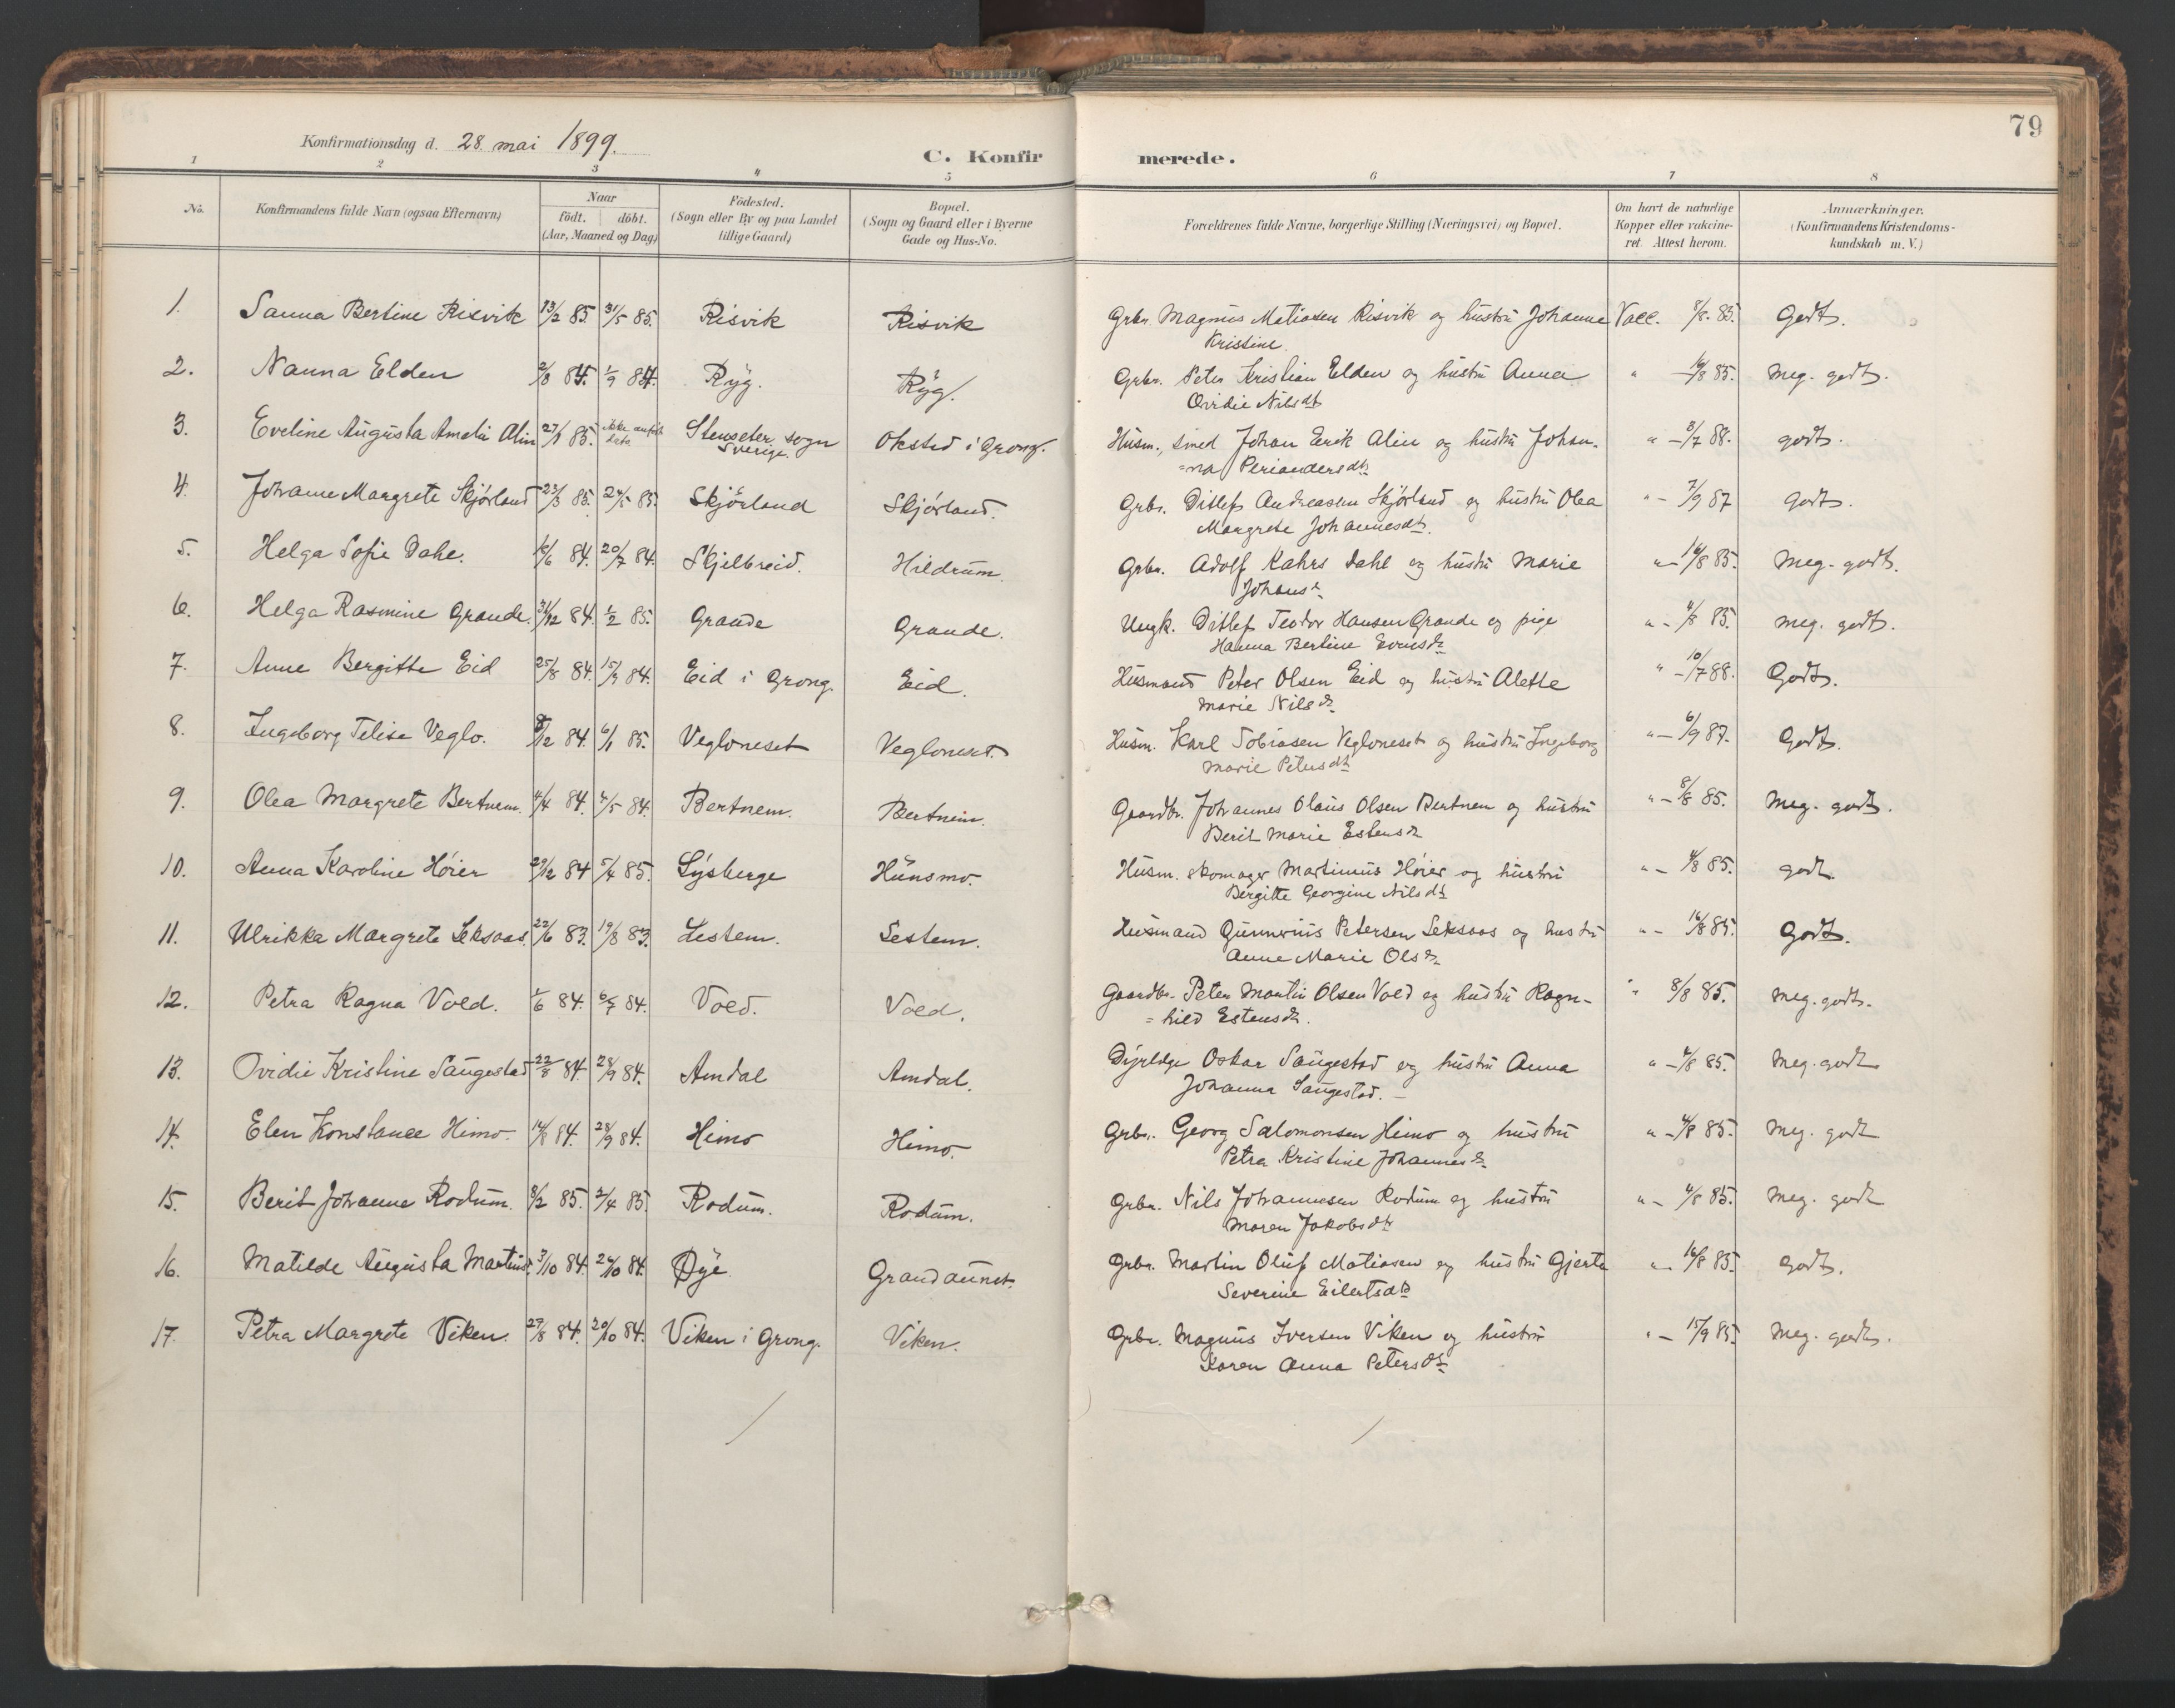 79
Konfirmationsdag d. 28. mai 1899.
C. Konfir merede.
1 2 3 4 5 6 7 8
No. Konfirmandens fulde Navn (ogsaa Efternavn) Naar födt. döbt. (Aar, Maaned og Dag) Födested. (Sogn eller By og paa Landet tillige Gaard) Bopæl. (Sogn og Gaard eller i Byerne Gade og Hus-No. Forældrenes fulde Navne, borgerlige Stilling (Næringsvei) og Bopæl. Om havt de naturlige Kopper eller vakcineret Attest herom. Anmærkninger. (Konfirmandens Kristendomskundskab m. V.)
1. Sanna Bertine Risvik 13/2 85. 31/5 85. Risvik Risvik Grbr. Magnus Matiasen Risvik og hustru Johanne Vacc. 8/8. 85. Godt.
Kristine
2. Nanna Elden 2/8 84. 1/9 84. Ryg. Ryg. Grbr. Peter Kristian Elden og hustru Anna " 16/8 85. Meg. godt.
Ovidie Nilsdt
3. Eveline Augusta Amelia Alin 27/1 85. ikke date Stenseter sogn Oksted i Grong. Husm., smed Johan Erik Alin og hustru Johan- " - 3/7 88. godt.
Sverige. =na Periandersdt
4. Johanne Margrete Skjörland 23/3 85. 24/5 85. Skjörland Skjörland. Grbr. Ditlef Andreassen Skjörland og hustru Olea " - 7/9 87 godt.
Margrete Johannesdt.
5. Helga Sofie Dahl. 16/6 84. 20/7 84. Skjelbreid. Hildrum. Grbr. Adolf Kahrs Dahl og hustru Marie " - 16/8 85. Meg. godt.
Johansd.
6. Helga Rasmine Grande. 31/12 84. 1/2 85. Grande Grande. Ungk. Ditlef Teodor Hansen Grande og pige " - 4/8 85. meg. godt.
Hanna Bertine
7. Anne Bergitte Eid 25/8 84. 15/9 84. Eid i Grong. Eid. Husmand Peter Olsen Eid og hustru Alette " - 10/7 88. Godt.
Marie Nilsd.
8. Ingeborg Telise Veglo. 8/12 84. 6/1 85. Vegloneset Vegloneset. Husm. Karl Tobiasen Vegloneset og hustru Ingeborg " - 6/9 87. Godt.
Marie Petersdt
9. Olea Margrete Bertnem. 4/4 84. 4/5 84. Bertnem. Bertnem. Gaardbr. Johannes Olaus Olsen Bertnem og hustru " - 8/8 85. Meg. godt.
Berit Marie Estensd.
10. Anna Karoline Höier 29/12 84 5/4 85. Lysberge Hunsmo. Husm. skomager Martinus Höier og hustru " - 4/8 85. godt
Bergitte Georgine Nilsdt
11. Ulrikka Margrete Seksaas. 22/6 83. 19/8 83. Sestem. Sestem. Husmand Gunnerius Petersen Seksaas og hustru " - 16/8 85. Godt.
Anne Marie Olsd.
12. Petra Ragna Vold. 1/6 84. 6/7 84. Vold. Vold. Gaardbr. Peter Martin Olsen Vold og hustru Ragn- " 8/8 85. Meg. godt.
=hild Estensd.
13. Ovidie Kristine Saugestad 22/8 84. 28/9 84. Amdal Amdal. Dyrlæge Oskar Saugestad og hustru Anna " - 4/8 85. Meg. godt
Johanna Saugestad. -
14. Elen Konstance Himo. 14/8 84. 28/9 84. Himo Himo. Grbr. Georg Salomonsen Himo og hustru " - 4/8 85. Meg. godt
Petra Kristine Johannesd.
15. Berit Johanne Rodum. 8/2 85. 2/4 85. Rodum. Rodum. Grbr. Nils Johannesen Rodum og hustru " - 4/8 85. Meg. godt
Maren Jakobsdt
16. Matilde Augusta Martins. 3/10 84. 26/10 84. Øye Grandaunet. Grbr. Martin Oluf Matiasen og hustru Gjerta " - 16/8 85. Godt.
Severine Eilertsdt
17. Petra Margrete Viken. 27/8 84. 20/10 84. Viken i Grong. Viken. Grbr. Magnus Iversen Viken og hustru " - 15/9 85. Meg. godt.
Karen Anna Petersdt